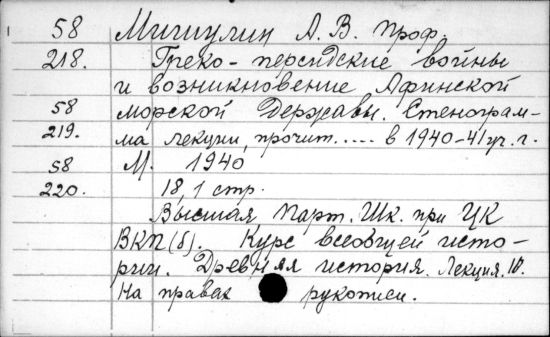 58 Мишулин А. В. проф.
218. Греко-персидские войны
и возникновение Афинской
58 морской державы. Стенограм-
219. ма лекции, прочит..... в 1940-41 уч. г.
58 М. 1940
220. 18, 1 стр.
Высшая Парт. Шк. при ЦК
ВКП(б). Курс всеобщей исто-
рии. Древняя история. Лекция 10.
На правах рукописи.